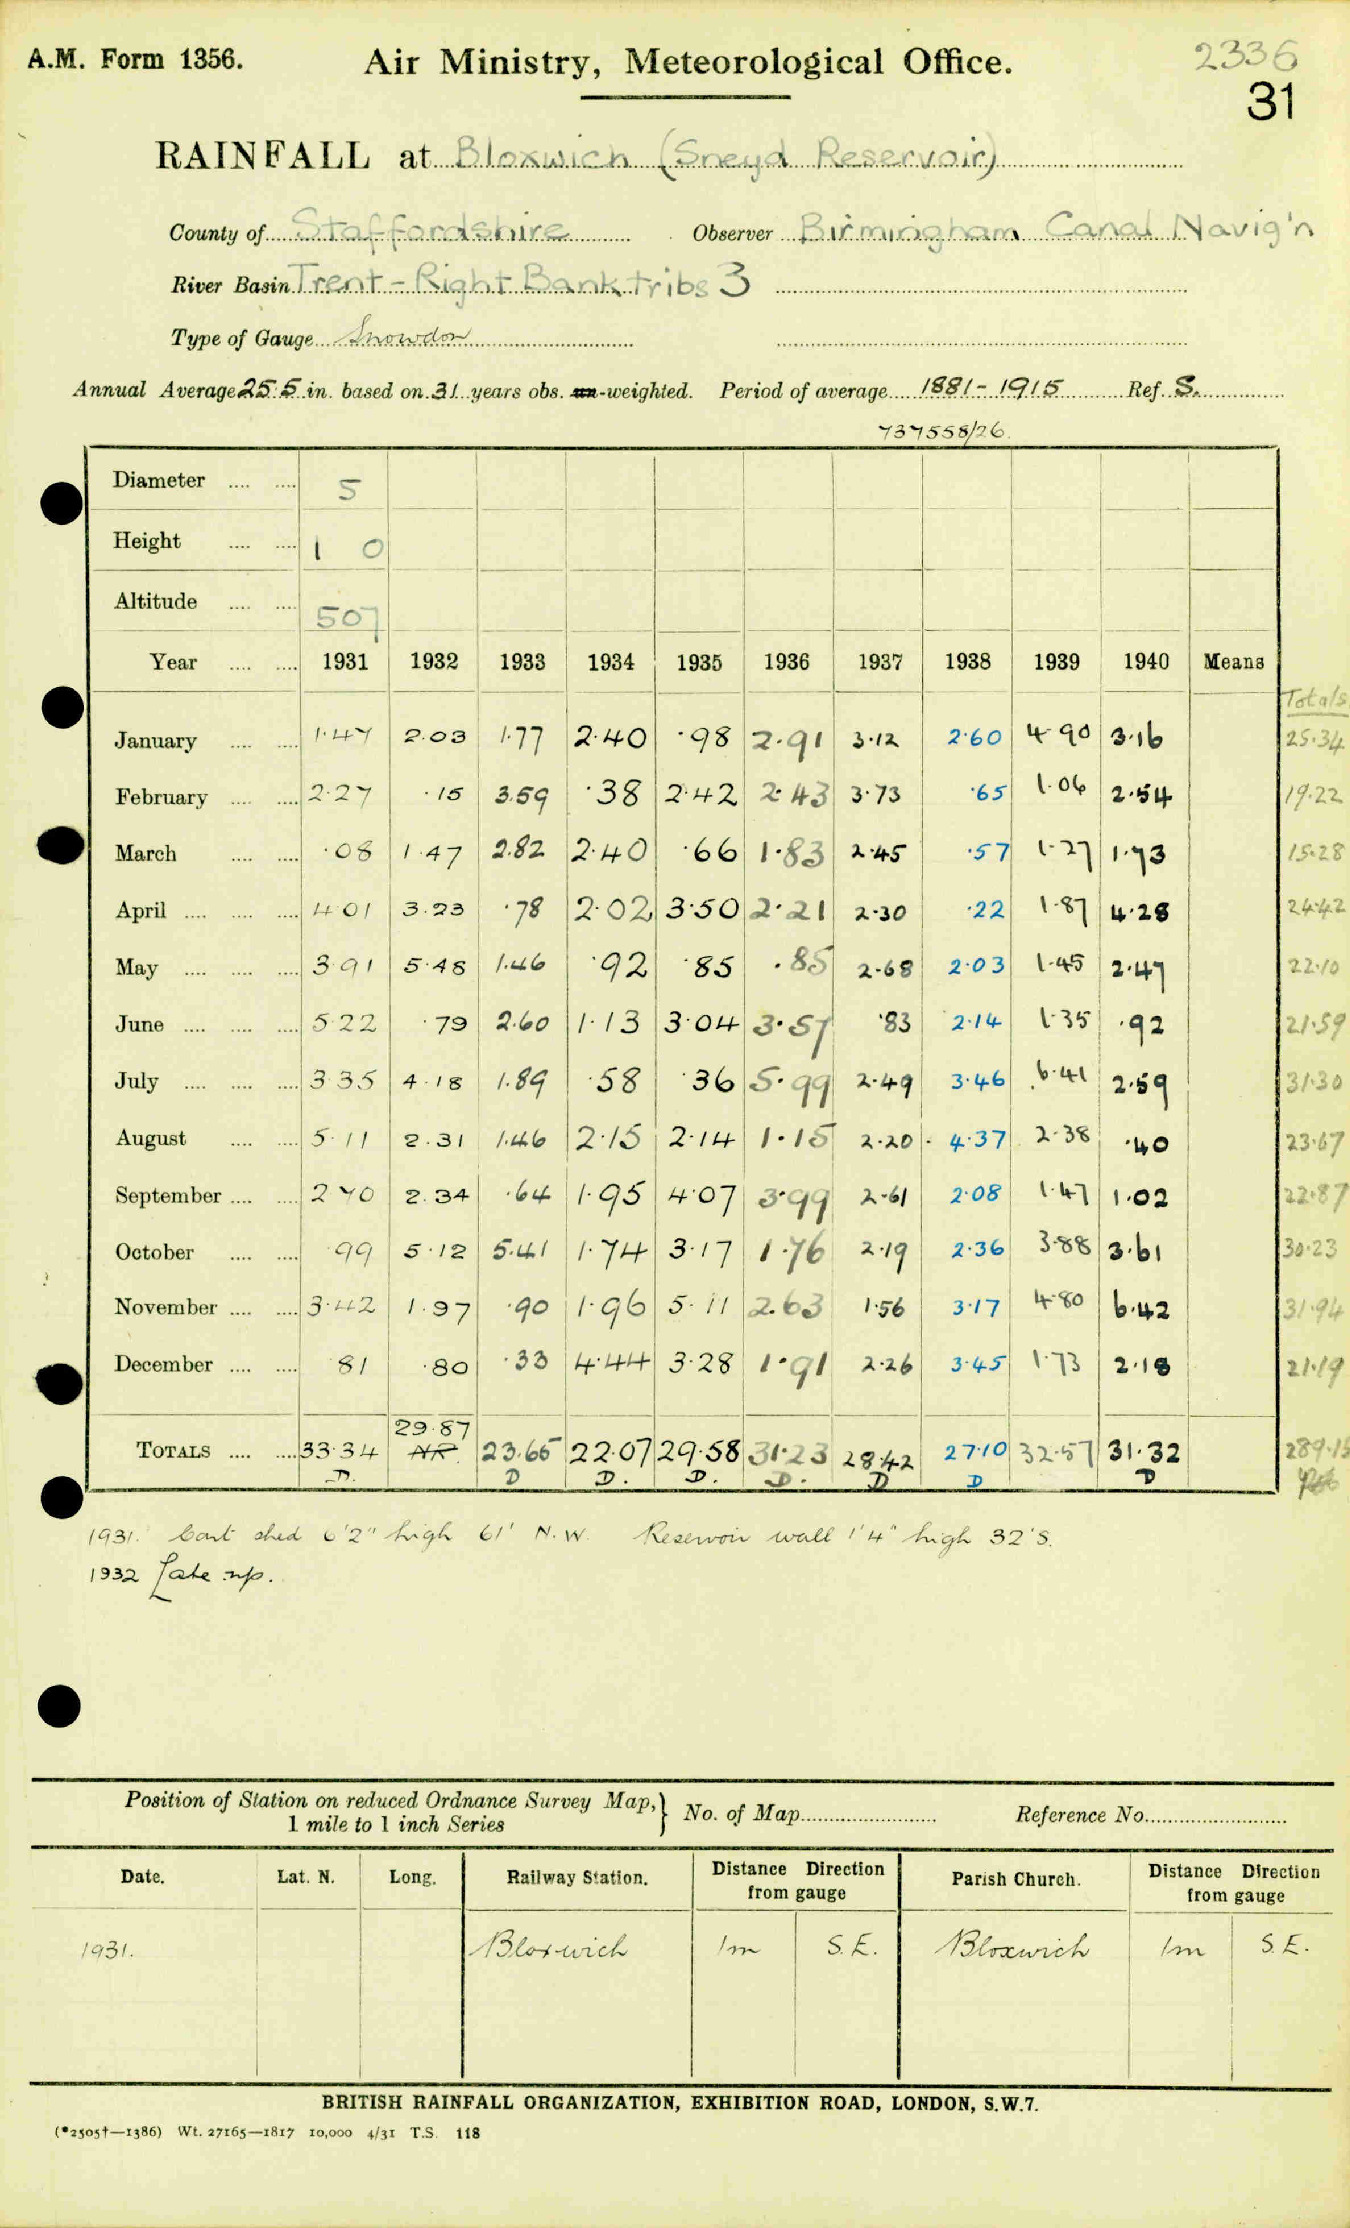 A.M. Form 1356. Air Ministry, Meteorological Office. 2336
31
RAINFALL at Bloxwich (Sneyd Reservoir)
County of Staffordshire Observer Birmingham Canal Navig'n
River Basin Trent - Right Bank tribs 3
Type of Gauge Snowdon
Annual Average 25.5 in. based on 31 years obs. un-weighted. Period of average 1881-1915 Ref. S.
737558/26.
Diameter .... .... 5
Height .... .... 1 0
Altitude .... .... 507
Year .... .... 1931 1932 1933 1934 1935 1936 1937 1938 1939 1940 Means
Totals
January .... .... 1.47 2.03 1.77 2.40 .98 2.91 3.12 2.60 4.90 3.16 25.34
February .... .... 2.27 .15 3.59 .38 2.42 2.43 3.73 .65 1.06 2.54 19.22
March .... .... .08 1.47 2.82 2.40 .66 1.83 2.45 .57 1.27 1.73 15.28
April .... .... .... 4.01 3.23 .78 2.02 3.50 2.21 2.30 .22 1.87 4.28 24.42
May .... .... .... 3.91 5.48 1.46 .92 .85 .85 2.68 2.03 1.45 2.47 22.10
June .... .... .... 5.22 .79 2.60 1.13 3.04 3.57 .83 2.14 1.35 .92 21.59
July .... .... .... 3.35 4.18 1.89 .58 .36 5.99 2.49 3.46 6.41 2.59 31.30
August .... .... 5.11 2.31 1.46 2.15 2.14 1.15 2.20 4.37 2.38 .40 23.67
September .... .... 2.70 2.34 .64 1.95 4.07 3.99 2.61 2.08 1.47 1.02 22.87
October .... .... .99 5.12 5.41 1.74 3.17 1.76 2.19 2.36 3.88 3.61 30.23
November .... .... 3.42 1.97 .90 1.96 5.11 2.63 1.56 3.17 4.80 6.42 31.94
December .... .... .81 .80 .33 4.44 3.28 1.91 2.26 3.45 1.73 2.18 21.19
29.87
TOTALS .... .... 33.34 NR 23.65 22.07 29.58 31.23 28.42 27.10 32.57 31.32 289.15
D. D D. D. D. D D D
1931. Cart shed 6'2" high 61' N.W. Reservoir wall 1'4" high 32' S.
1932 Late up.
Position of Station on reduced Ordnance Survey Map, } No. of Map Reference No.
1 mile to 1 inch Series
Date. Lat. N. Long. Railway Station. Distance Direction from gauge Parish Church. Distance Direction from gauge
1931. Bloxwich 1m S.E. Bloxwich 1m S.E.
BRITISH RAINFALL ORGANIZATION, EXHIBITION ROAD, LONDON, S.W.7.
(*2505†—1386) Wt. 27165—1817 10,000 4/31 T.S. 118